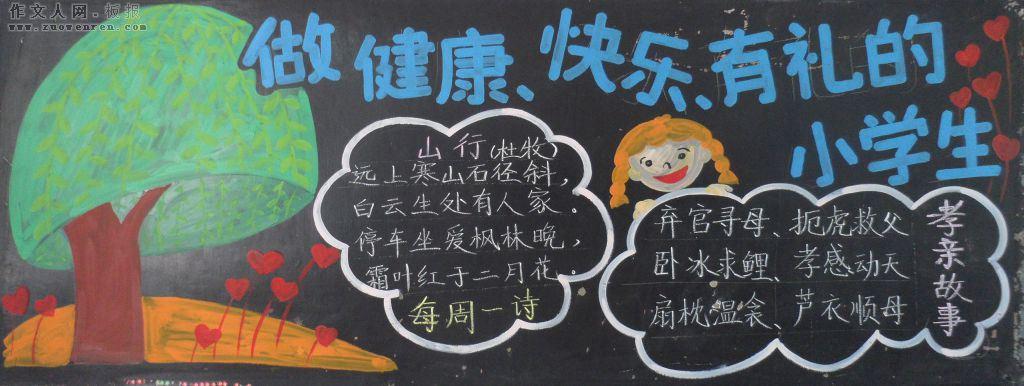 作文人网·板报
www.zuowenren.com
做健康、快乐、有礼的
小学生
山行(杜牧)
远上寒山石径斜，
白云生处有人家。
停车坐爱枫林晚，
霜叶红于二月花。
每周一诗
孝亲故事
弃官寻母、扼虎救父
卧冰求鲤、孝感动天
扇枕温衾、芦衣顺母